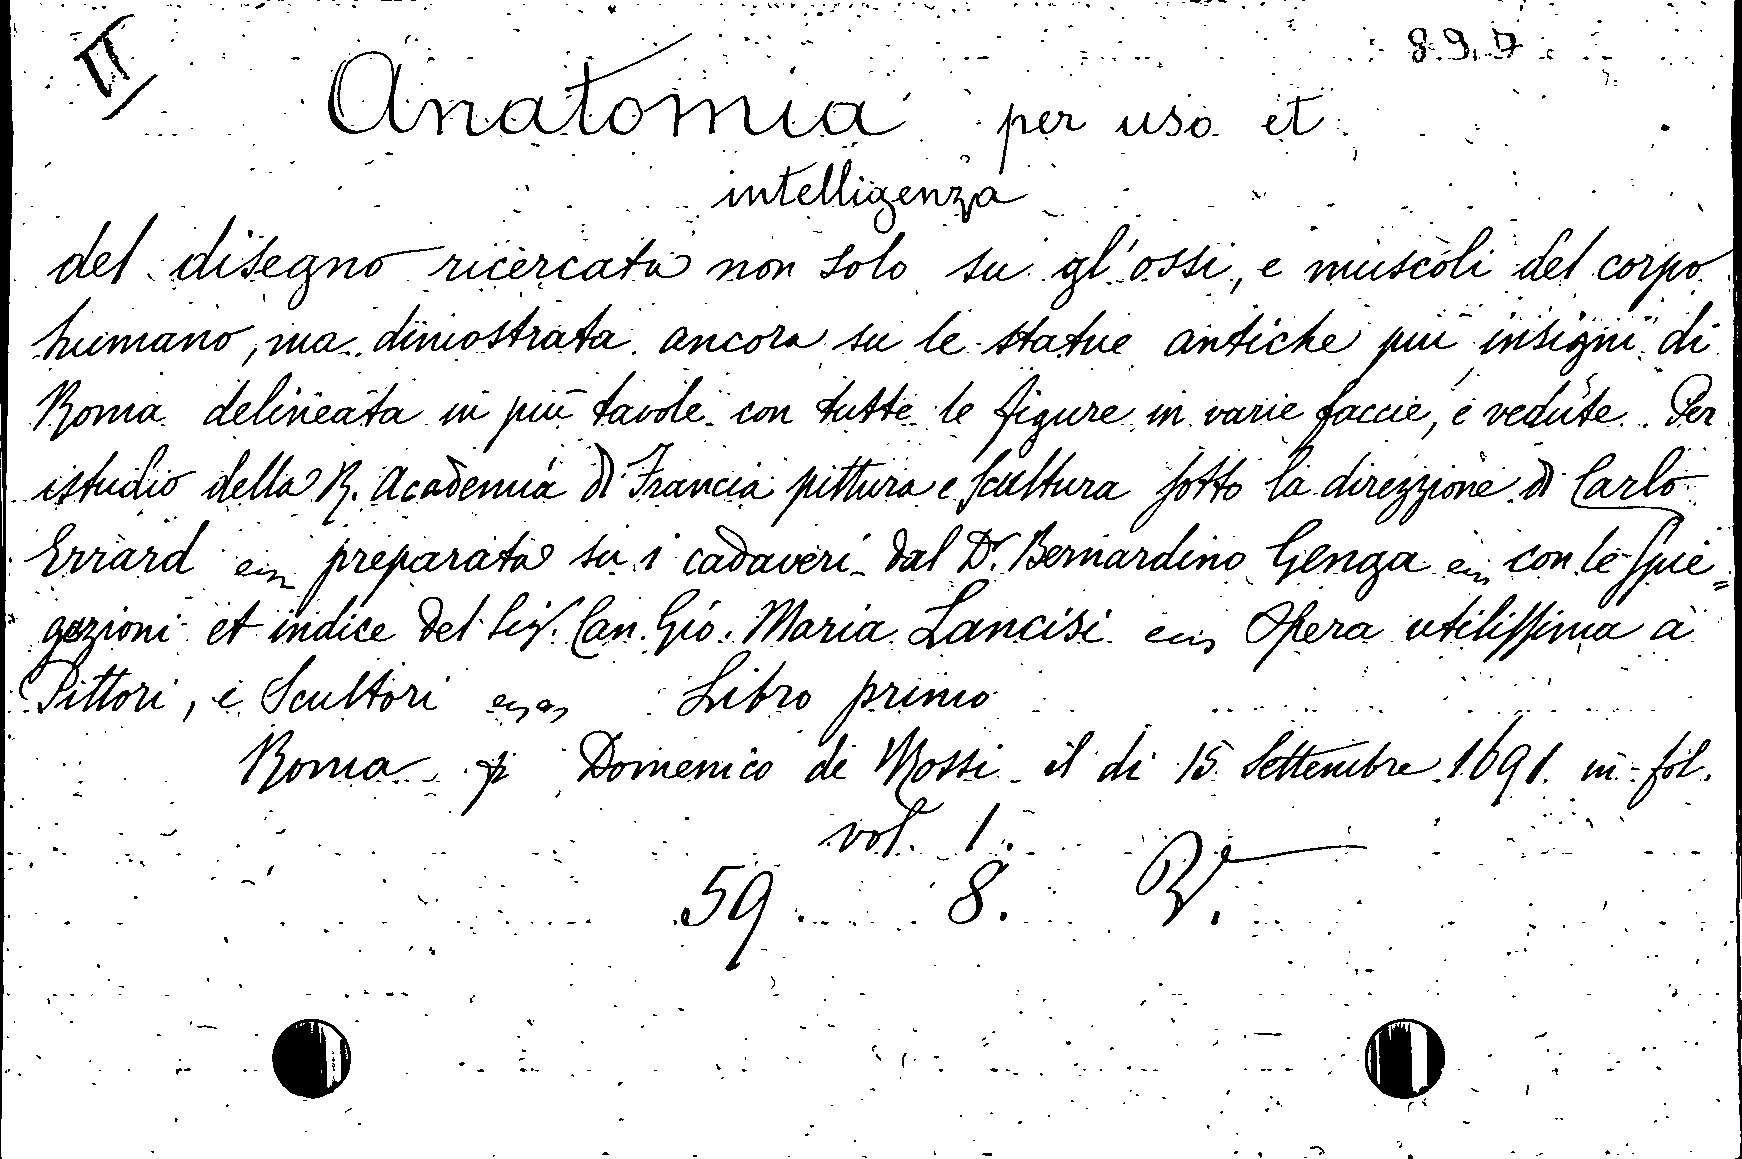 II
8 9. 7
Anatomia per uso et
intelligenza
del disegno ricercata non solo su gl'ossi, e muscoli del corpo
humano, ma dimostrata ancora su le statue antiche più insigni di
Roma delineata in più tavole con tutte le figure in varie faccie, e vedute. Per
istudio della R. Academia di Francia pittura e scultura sotto la direzzione di Carlo
Errard preparata su i cadaveri dal Dr. Bernardino Genga con le spie=
gazioni et indice del Sigr. Can. Gio. Maria Lancisi Opera utilissima à
Pittori, e Scultori Libro primo
Roma p Domenico de Rossi il di 15 Settembre 1691. in-fol.
vol. 1.
59. 8.